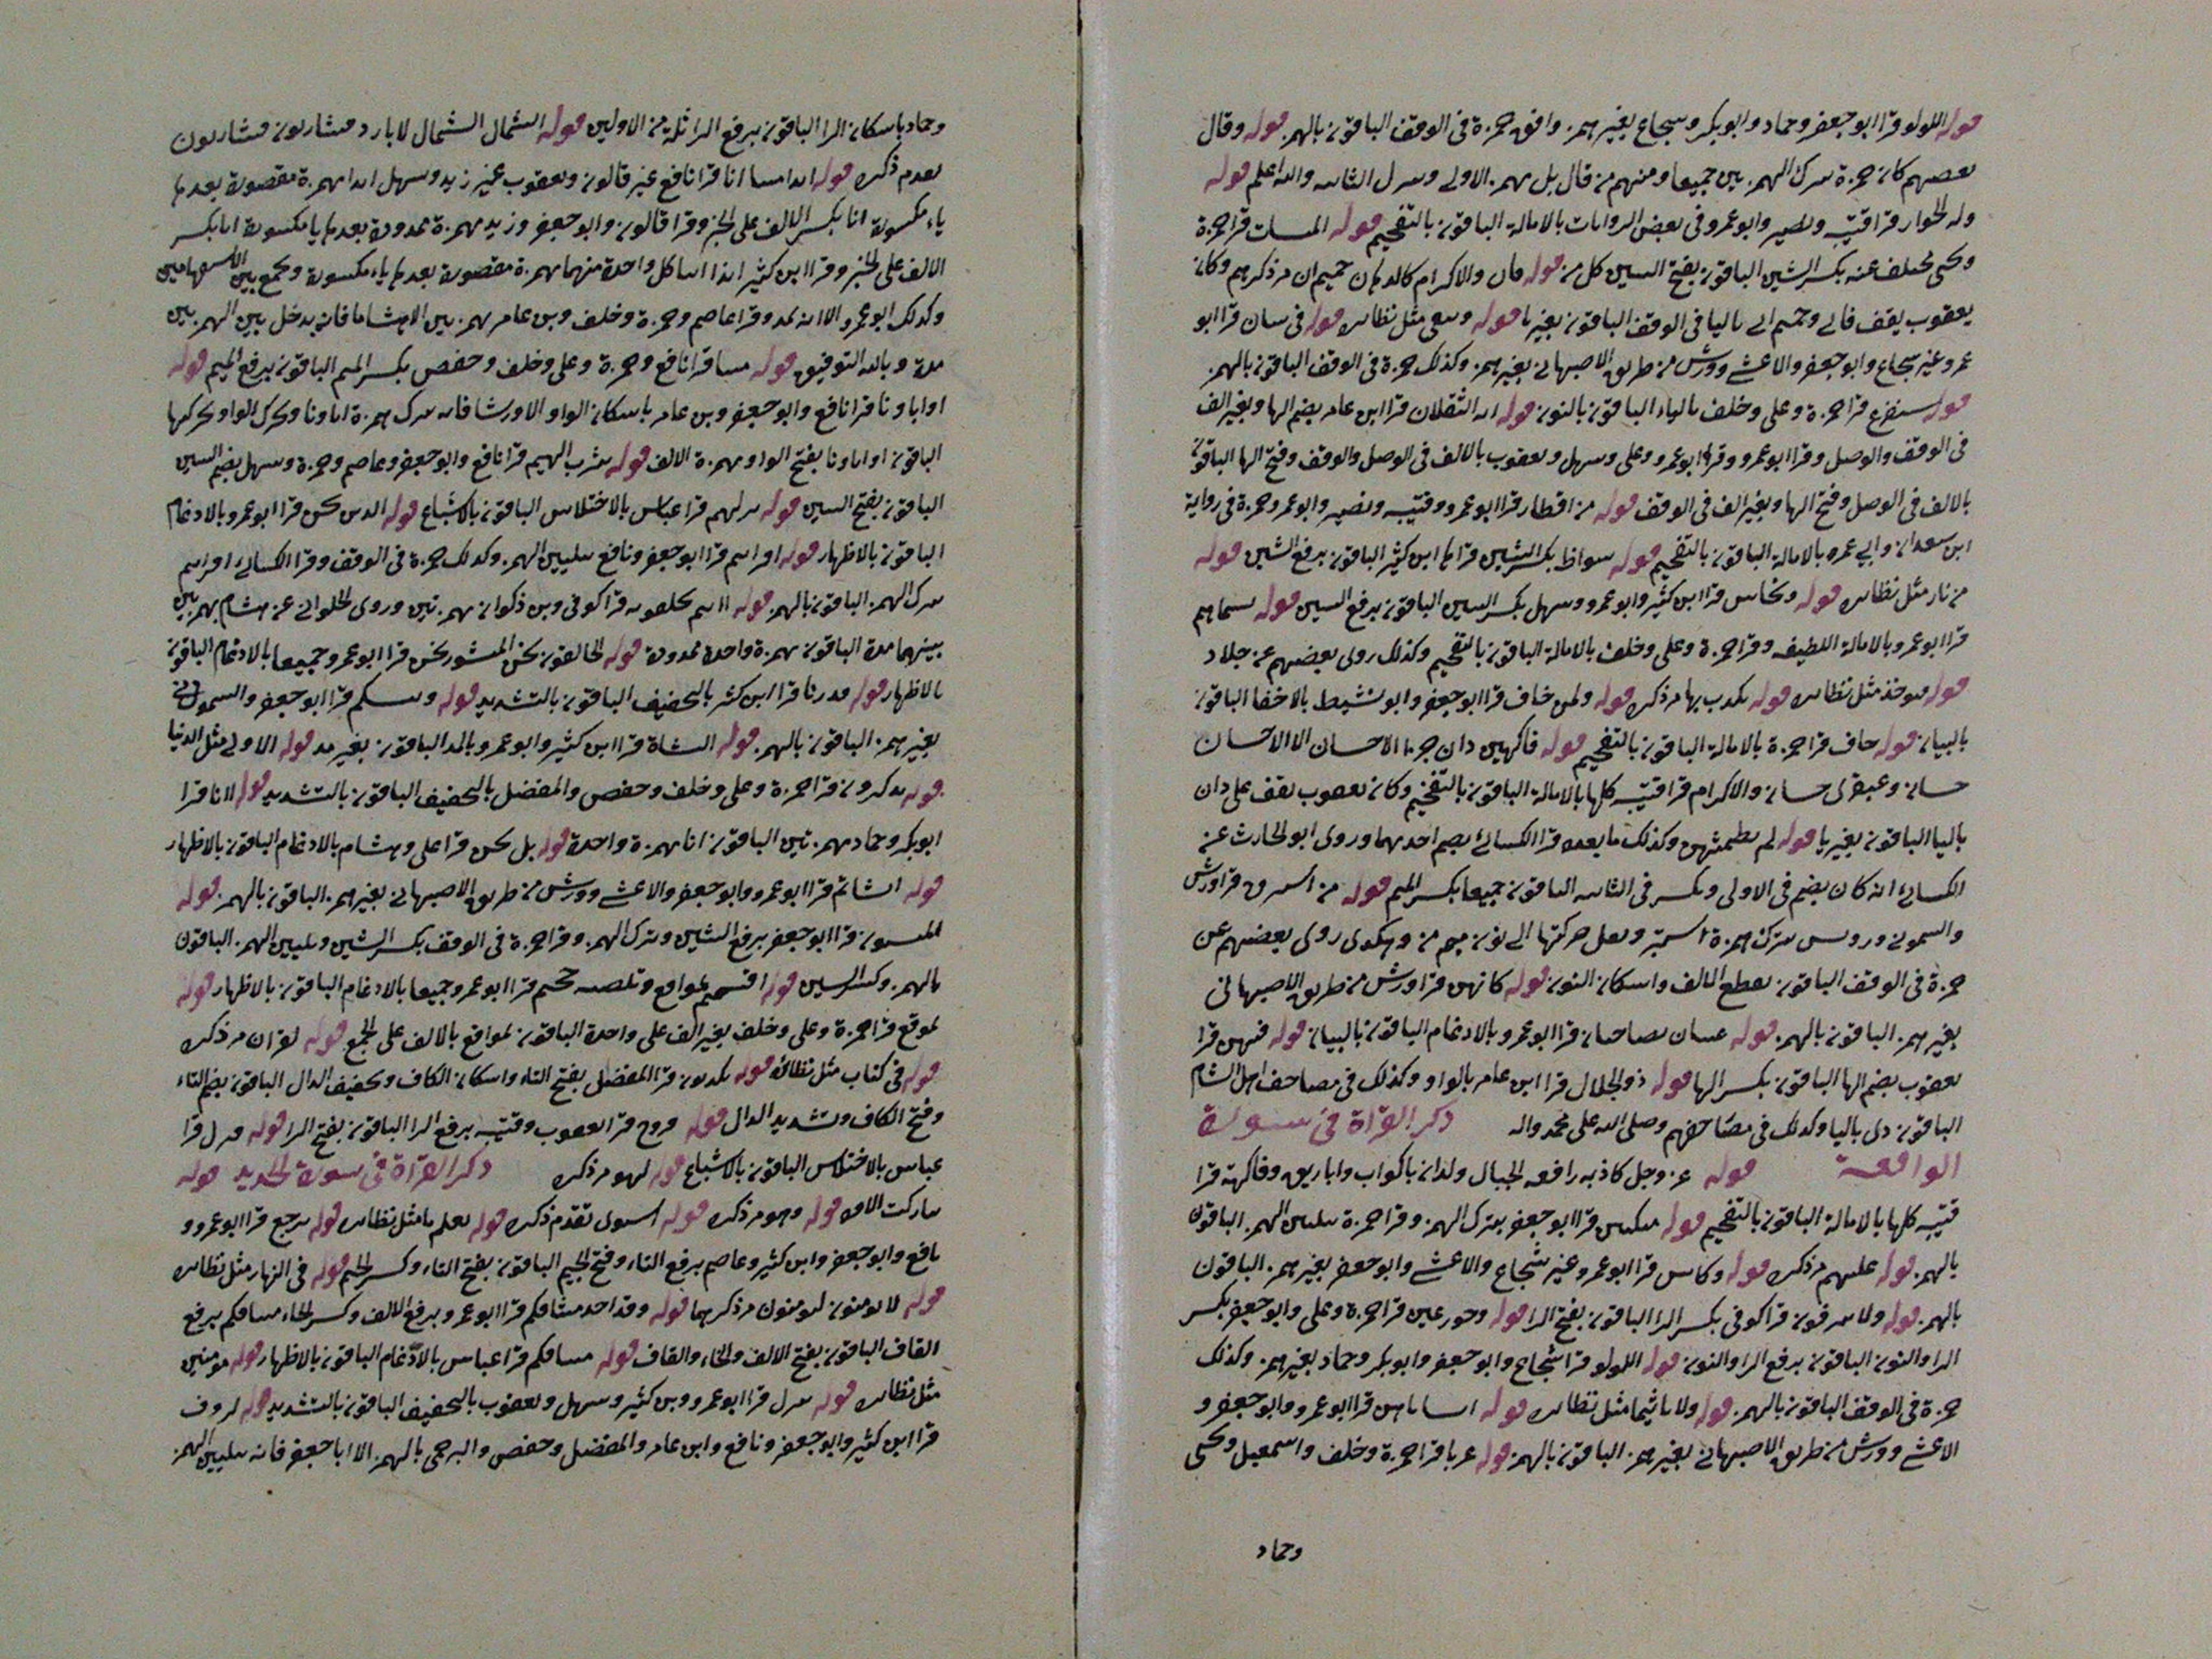 قوله اللولو قرا ابو جعفر وحماد وابو بكر وشجاع بغير همز وافق حمزة في الوقف الباقون بالهمز قوله وقال
بعضهم كان حمزة يترك الهمزتين جميعا ومنهم من قال بل يهمز الاولى ويترك الثانيه والله اعلم قوله
وله الجوار قرا قتيبه ونصير وابو عمرو في بعض الروايات بالامالة الباقون بالتفخيم قوله المنشات قرا حمزة
ويحيى عنه بكسر الشين الباقون بفتح الشين كل من قوله فان والاكرام كالدهان حميم ان مر ذكرهم وكان
يعقوب يقف فاني وحميم اني باليا في الوقف الباقون بغير يا قوله ويبقى مثل نظائره قوله في شان قرا ابو
عمرو غير شجاع وابو جعفر والاعشى وورش من طريق الاصبهاني بغير همز وكذلك حمزة في الوقف الباقون بالهمز
قوله سنفرغ قرا حمزة وعلي وخلف بالياء الباقون بالنون قوله ايه الثقلان قرا ابن عامر بضم الها وبغير الف
في الوقف والوصل وقرا ابو عمرو وعلي وسهل ويعقوب بالالف في الوصل والوقف وفتح الها الباقون
بالالف في الوصل وفتح الها وبغير الف في الوقف قوله من اقطار قرا ابو عمرو وقتيبه ونصير وابو عمرو وحمزة في رواية
ابن سعدان وابي عمر بالامالة الباقون بالتفخيم قوله شواظ بكسر الشين قراها ابن كثير الباقون برفع الشين قوله
من نار مثل نظائره قوله ونحاس قرا ابن كثير وابو عمرو وسهل بكسر السين الباقون برفع السين قوله بسيماهم
قرا ابو عمرو بالامالة اللطيفه وقرا حمزة وعلي وخلف بالامالة الباقون بالتفخيم وكذلك روى بعضهم عن خلاد
قوله فيوخذ مثل نظائره قوله يكذب بها مر ذكره قوله ولمن خاف قرا ابو جعفر وابو نشيط بالاخفا الباقون
بالبيان قوله خاف قرا حمزة بالامالة الباقون بالتفخيم قوله فاكهين دان جزا الاحسان الا الاحسان
حسان وعبقري حسان والاكرام قرا قتيبه كلها بالامالة الباقون بالتفخيم وكان يعقوب يقف على دان
باليا الباقون بغير يا قوله لم يطمثهن وكذلك ما بعده قرا الكسائي بضم احدهما وروى ابو الحارث عن
الكسائي انه كان يضم في الاولى ويكسر في الثانيه الباقون جميعا بكسر الميم قوله من استبرق قرا ورش
والسموني ورويس بترك همزة استبرق ونقل حركتها الى نون من وهكذى روى بعضهم عن
حمزة في الوقف الباقون بقطع الالف واسكان النون قوله كانهن قرا ورش من طريق الاصبهاني
بغير همز الباقون بالهمز قوله عينان نضاختان قرا ابو عمرو بالادغام الباقون بالبيان قوله فيهن قرا
يعقوب بضم الها الباقون بكسر الها قوله ذو الجلال قرا ابن عامر بالواو وكذلك في مصاحف اهل الشام
الباقون ذي باليا وكذلك في مصاحفهم وصلى الله على محمد واله ذكر القراة في سورة
الواقعة قوله عز وجل كاذبه رافعه الجبال ولدان باكواب واباريق وفاكهة قرا
قتيبه كلها بالامالة الباقون بالتفخيم قوله متكئين قرا ابو جعفر بترك الهمز وقرا حمزة بتليين الهمز الباقون
بالهمز قوله عليهم مر ذكره قوله وكاس قرا ابو عمرو غير شجاع والاعشى وابو جعفر بغير همز الباقون
بالهمز قوله ولا ينزفون قرا كوفي بكسر الزا الباقون بفتح الزا قوله وحور عين قرا حمزة وعلي وابو جعفر بكسر
الرا والنون الباقون برفع الرا والنون قوله اللولو قرا شجاع وابو جعفر وابو بكر وحماد بغير همز وكذلك
حمزة في الوقف الباقون بالهمز قوله ولا تاثيما مثل نظائره قوله انشاناهن قرا ابو عمرو وابو جعفر و
الاعشى وورش من طريق الاصبهاني بغير همز الباقون بالهمز قوله عربا قرا حمزة وخلف واسمعيل ويحيى
وحماد
وحماد باسكان الرا الباقون برفع الرا ثلة من الاولين قوله الشمال الشمال لا بارد فشاربون فشاربون
تقدم ذكره قوله ائذا متنا انا قرا نافع غير قالون ويعقوب غير زيد وسهل ائذا بهمزة مقصورة بعدها
ياء مكسورة انا بكسر الالف على الخبر وقرا قالون وابو جعفر وزيد بهمزة ممدودة بعدها يا مكسورة انا بكسر
الالف على الخبر وقرا ابن كثير ائذا ائنا كل واحدة منهما بهمزة مقصورة بعدها ياء مكسورة ويجمع بين الاستفهامين
وكذلك ابو عمرو الا انه يمد وقرا عاصم وحمزة وخلف وبن عامر بهمزتين الا هشاما فانه يدخل بين الهمزتين
مدة وبالله التوفيق قوله متنا قرا نافع وحمزة وعلي وخلف وحفص بكسر الميم الباقون برفع الميم قوله
اواباونا قرا نافع وابو جعفر وبن عامر باسكان الواو الا ورشا فانه يترك همزة اباونا ويحرك الواو بحركتها
الباقون اواباونا بفتح الواو بهمزة الالف قوله شرب الهيم قرا نافع وابو جعفر وعاصم وحمزة وسهل بضم الشين
الباقون بفتح الشين قوله نزلهم قرا عباس بالاختلاس الباقون بالاشباع قوله الدين نحن قرا ابو عمرو بالادغام
الباقون بالاظهار قوله افرايتم قرا ابو جعفر ونافع بتليين الهمز وكذلك حمزة في الوقف وقرا الكسائي افرايتم
بترك الهمز الباقون بالهمز قوله اانتم تخلقونه قرا كوفي وبن ذكوان بهمزتين وروى الحلواني عن هشام بهمزتين
بينهما مدة الباقون بهمزة واحدة ممدودة قوله الخالقون نحن المنشون نحن قرا ابو عمرو جميعا بالادغام الباقون
بالاظهار قوله قدرنا قرا ابن كثير بالتخفيف الباقون بالتشديد قوله وننشيكم قرا ابو جعفر والسموني
بغير همز الباقون بالهمز قوله النشاة قرا ابن كثير وابو عمرو بالمد الباقون بغير مد قوله الاولى مثل الدنيا
قوله تذكرون قرا حمزة وعلي وخلف وحفص والمفضل بالتخفيف الباقون بالتشديد قوله لانا قرا
ابو بكر وحماد بهمزتين الباقون انا بهمزة واحدة قوله بل نحن قرا علي وهشام بالادغام الباقون بالاظهار
قوله انشاتم قرا ابو عمرو وابو جعفر والاعشى وورش من طريق الاصبهاني بغير همز الباقون بالهمز قوله
المنشون قرا ابو جعفر برفع الشين وترك الهمز وقرا حمزة في الوقف بكسر الشين وتليين الهمز الباقون
بالهمز وكسر الشين قوله اقسم بمواقع وتصلية جحيم قرا ابو عمرو جميعا بالادغام الباقون بالاظهار قوله
بموقع قرا حمزة وعلي وخلف بغير الف على واحدة الباقون بمواقع بالالف على الجمع قوله لقران مر ذكره
قوله في كتاب مثل نظائره قوله تكذبون قرا المفضل بفتح التاء واسكان الكاف وتخفيف الذال الباقون بضم التاء
وفتح الكاف وتشديد الذال قوله فروح قرا يعقوب وقتيبه برفع الرا الباقون بفتح الرا قوله فنزل قرا
عباس بالاختلاس الباقون بالاشباع قوله لهو مر ذكره ذكر القراة في سورة الحديد قوله
قوله وهو مر ذكره قوله استوى تقدم ذكره قوله يعلم ما مثل نظائره قوله ترجع قرا ابو عمرو و
نافع وابو جعفر وابن كثير وعاصم برفع التاء وفتح الجيم الباقون بفتح التاء وكسر الجيم قوله في النهار مثل نظائره
قوله لا تومنون لتومنون مر ذكرهما قوله وقد اخذ ميثاقكم قرا ابو عمرو برفع الالف وكسر الخاء ميثاقكم برفع
القاف الباقون بفتح الالف والخاء والقاف قوله ميثاقكم قرا عباس بالادغام الباقون بالاظهار قوله مومنين
مثل نظائره قوله ينزل قرا ابو عمرو وبن كثير وسهل ويعقوب بالتخفيف الباقون بالتشديد قوله لروف
قرا ابن كثير وابو جعفر ونافع وابن عامر والمفضل وحفص والبرجمي بالهمز الا ابا جعفر فانه بتليين الهمز